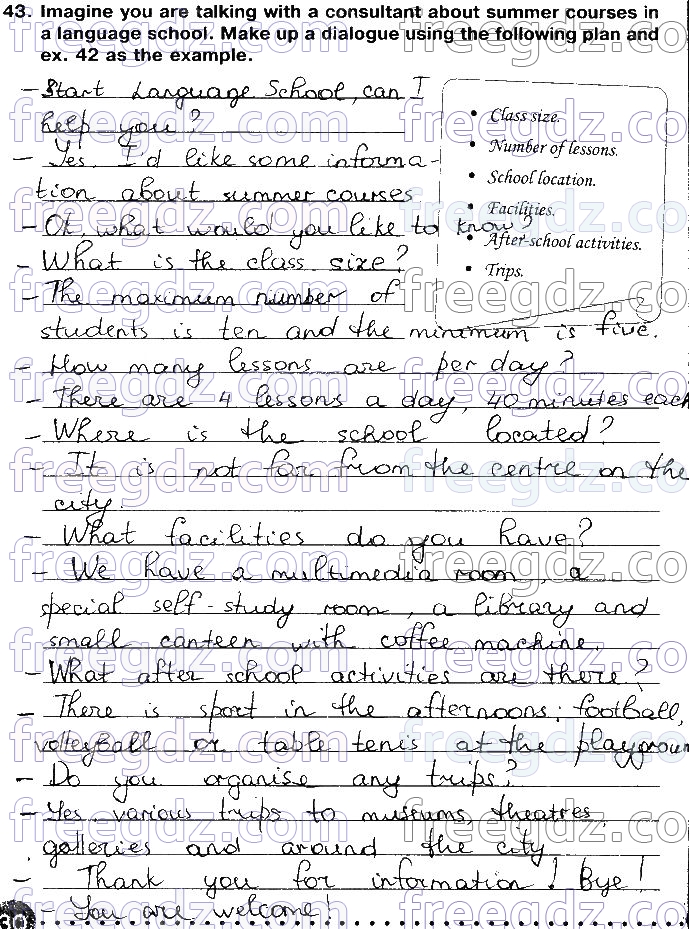 43. Imagine you are talking with a consultant about summer courses in
a language school. Make up a dialogue using the following plan and
ex. 42 as the example.
• Class size.
• Number of lessons.
• School location.
• Facilities.
• After-school activities.
• Trips.
- Start Language School, can I
help you?
- Yes I'd like some informa-
tion about summer courses
- Ok, what would you like to know?
- What is the class size?
- The maximum number of
students is ten and the minimum is five.
- How many lessons are per day?
- There are 4 lessons a day, 40 minutes each
- Where is the school located?
- It is not far from the centre on the
city.
- What facilities do you have?
- We have a multimedia room, a
special self-study room, a library and
small canteen with coffee machine.
- What after school activities are there?
- There is sport in the afternoons: football,
volleyball or table tenis at the playgroun
- Do you organise any trips?
- Yes, various trips to museums, theatres,
galleries and around the city
- Thank you for information! Bye!
- You are welcome!
freegdz.com